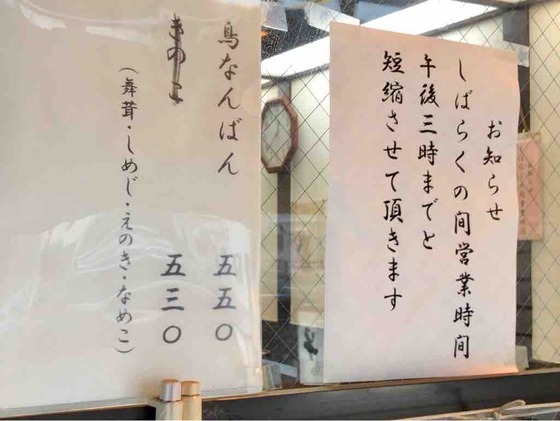 お知らせ
しばらくの間営業時間
午後三時までと
短縮させて頂きます
鳥なんばん 五五〇
きのこ 五三〇
(舞茸・しめじ・えのき・なめこ)